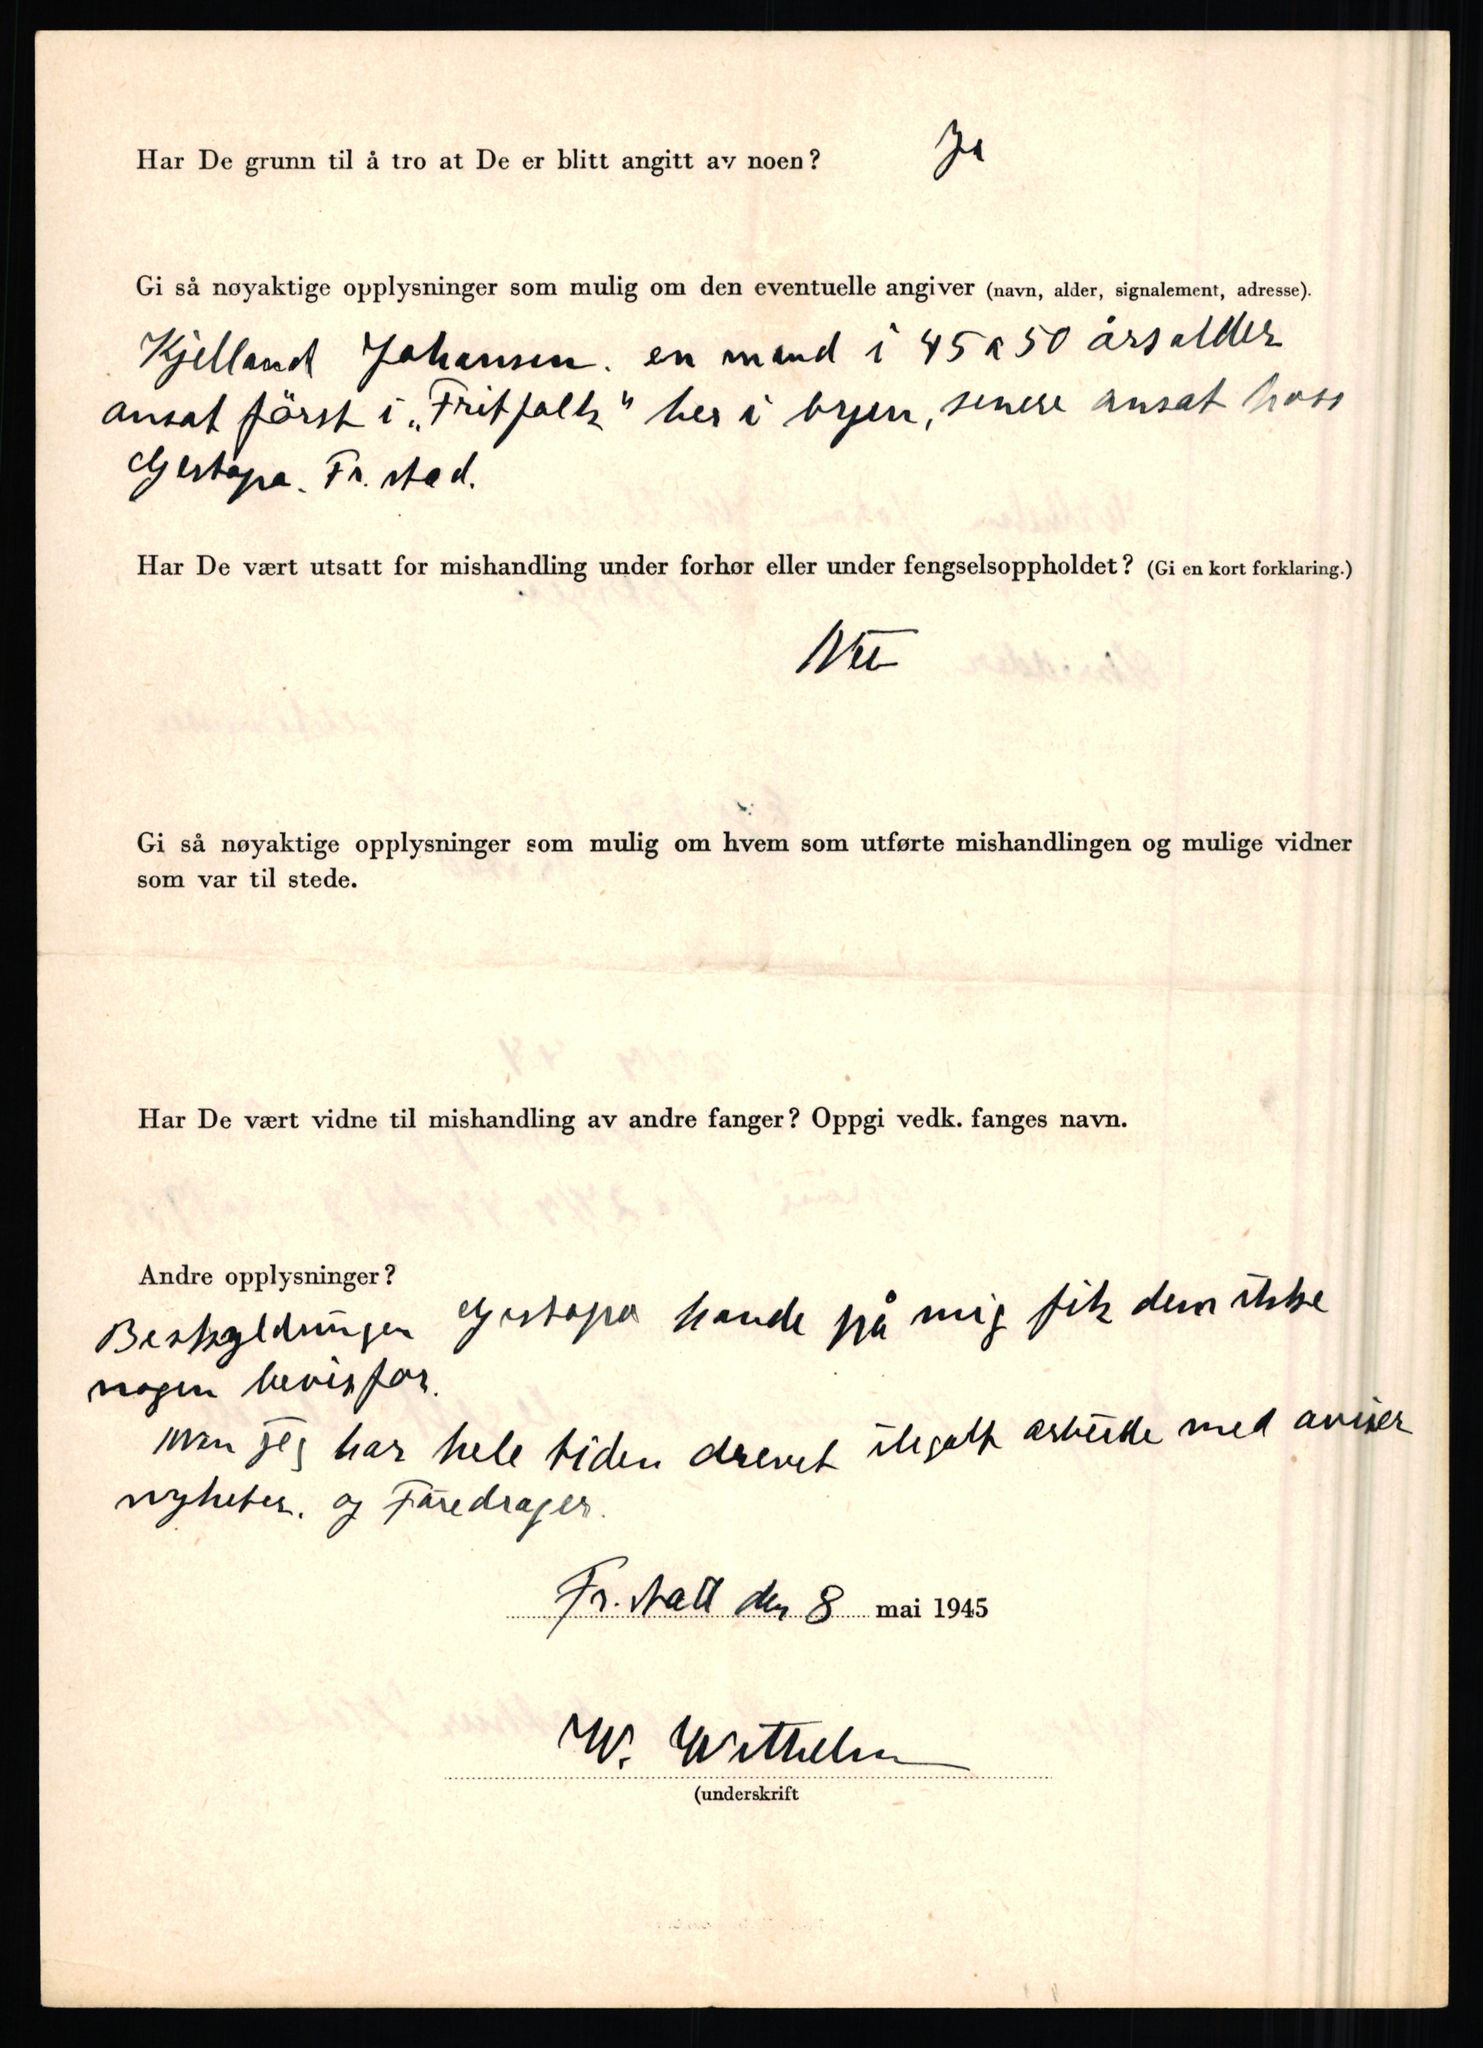 Har De grunn til å tro at De er blitt angitt av noen? Ja
Gi så nøyaktige opplysninger som mulig om den eventuelle angiver (navn, alder, signalement, adresse).
Kjelland Johansen. en mand i 45 a 50 årsalder
ansat først i „Fritfolk" her i byen, senere ansat hoss
Gestapo. Fr. stad.
Har De vært utsatt for mishandling under forhør eller under fengselsoppholdet? (Gi en kort forklaring.)
Nei
Gi så nøyaktige opplysninger som mulig om hvem som utførte mishandlingen og mulige vidner
som var til stede.
Har De vært vidne til mishandling av andre fanger? Oppgi vedk. fanges navn.
Andre opplysninger?
Beskyldningen Gestapo hande på mig fik dem ikke
nogen bevis for.
men jeg har hele tiden drevet ilegalt arbeide med aviser
nyheter. og Foredrager.
Fr. stad den 8 mai 1945
W. Withelm
(underskrift